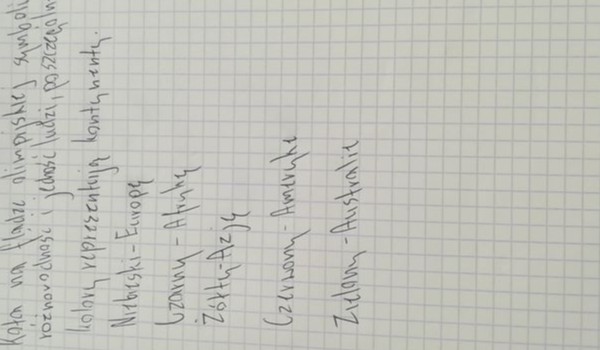 Koła na fladze olimpijskiej symboli
różnorodność i jedność ludzi, poszczególn
kolory reprezentują kontynenty.
Niebieski - Europę
Czarny - Afrykę
Żółty - Azję
Czerwony - Amerykę
Zielony - Australię